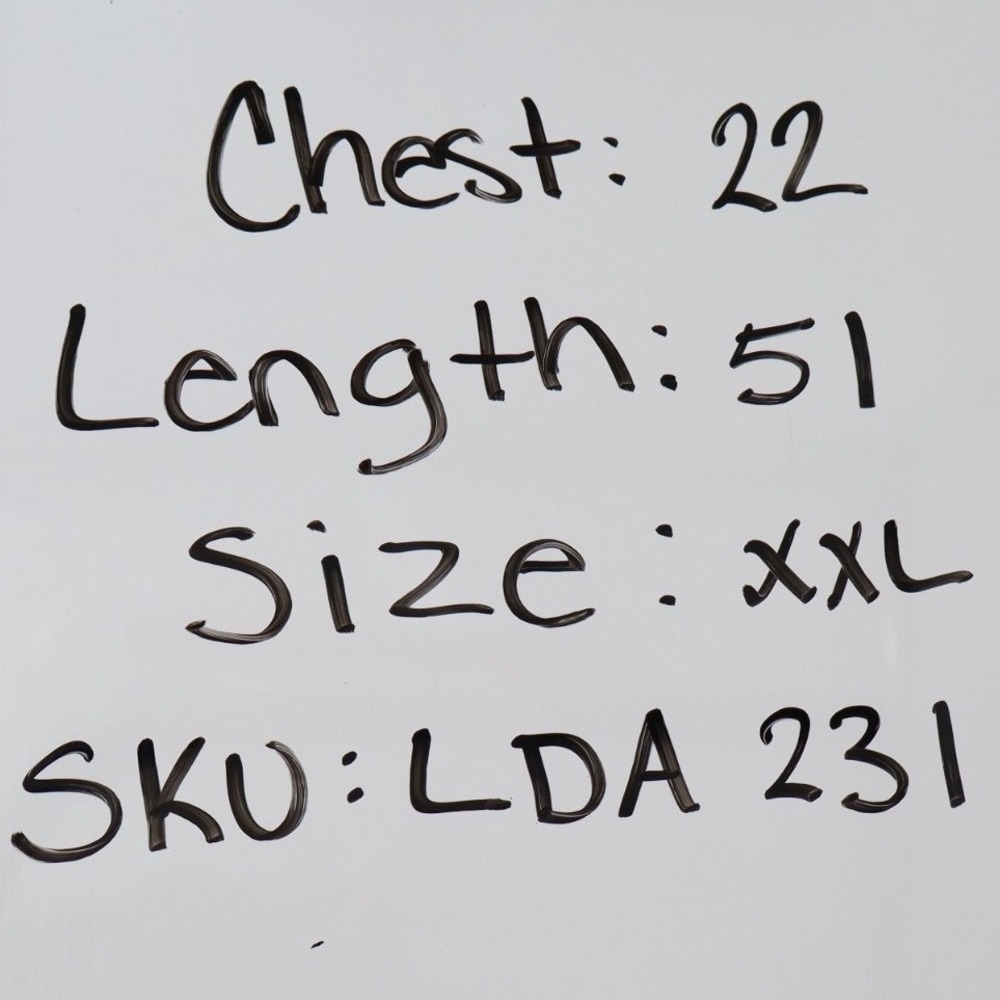 Chest: 22
Length: 51
Size: XXL
SKU: LDA 231